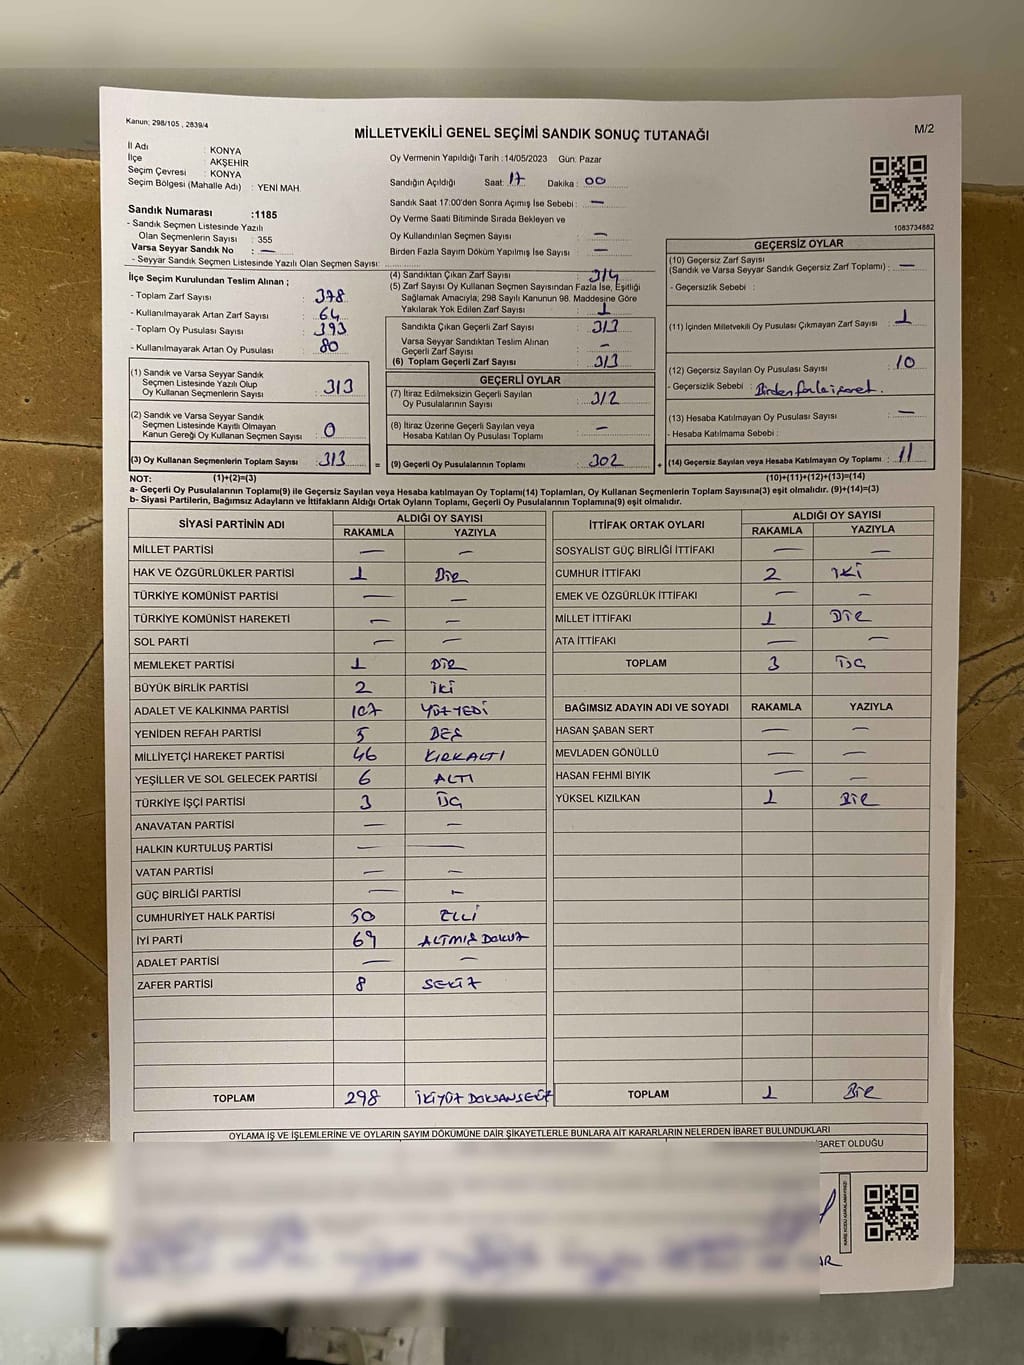 Kanun; 298/105 , 2839/4
MİLLETVEKİLİ GENEL SEÇİMİ SANDIK SONUÇ TUTANAĞI
M/2
İl Adı : KONYA
İlçe : AKŞEHİR
Seçim Çevresi : KONYA
Seçim Bölgesi (Mahalle Adı) : YENİ MAH.
Sandık Numarası :1185
- Sandık Seçmen Listesinde Yazılı
Olan Seçmenlerin Sayısı : 355
Varsa Seyyar Sandık No : —
- Seyyar Sandık Seçmen Listesinde Yazılı Olan Seçmen Sayısı:
İlçe Seçim Kurulundan Teslim Alınan ;
- Toplam Zarf Sayısı : 378
- Kullanılmayarak Artan Zarf Sayısı : 64
- Toplam Oy Pusulası Sayısı : 393
- Kullanılmayarak Artan Oy Pusulası : 80
(1) Sandık ve Varsa Seyyar Sandık
Seçmen Listesinde Yazılı Olup
Oy Kullanan Seçmenlerin Sayısı : 313
(2) Sandık ve Varsa Seyyar Sandık
Seçmen Listesinde Kayıtlı Olmayan
Kanun Gereği Oy Kullanan Seçmen Sayısı : 0
(3) Oy Kullanan Seçmenlerin Toplam Sayısı : 313 =
Oy Vermenin Yapıldığı Tarih :14/05/2023 Gün: Pazar
Sandığın Açıldığı Saat: 17 Dakika : 00
Sandık Saat 17:00'den Sonra Açımış İse Sebebi : —
Oy Verme Saati Bitiminde Sırada Bekleyen ve
Oy Kullandırılan Seçmen Sayısı : —
Birden Fazla Sayım Döküm Yapılmış İse Sayısı : —
(4) Sandıktan Çıkan Zarf Sayısı : 314
(5) Zarf Sayısı Oy Kullanan Seçmen Sayısından Fazla İse, Eşitliği
Sağlamak Amacıyla; 298 Sayılı Kanunun 98. Maddesine Göre
Yakılarak Yok Edilen Zarf Sayısı : 1
Sandıkta Çıkan Geçerli Zarf Sayısı : 313
Varsa Seyyar Sandıktan Teslim Alınan
Geçerli Zarf Sayısı : —
(6) Toplam Geçerli Zarf Sayısı : 313
GEÇERLİ OYLAR
(7) İtiraz Edilmeksizin Geçerli Sayılan
Oy Pusulalarının Sayısı : 312
(8) İtiraz Üzerine Geçerli Sayılan veya
Hesaba Katılan Oy Pusulası Toplamı : —
(9) Geçerli Oy Pusulalarının Toplamı : 302 +
1083734882
GEÇERSİZ OYLAR
(10) Geçersiz Zarf Sayısı
(Sandık ve Varsa Seyyar Sandık Geçersiz Zarf Toplamı) : —
- Geçersizlik Sebebi :
(11) İçinden Milletvekili Oy Pusulası Çıkmayan Zarf Sayısı : 1
(12) Geçersiz Sayılan Oy Pusulası Sayısı : 10
- Geçersizlik Sebebi : Birden fazla işaret.
(13) Hesaba Katılmayan Oy Pusulası Sayısı : —
- Hesaba Katılmama Sebebi :
(14) Geçersiz Sayılan veya Hesaba Katılmayan Oy Toplamı : 11
NOT: (1)+(2)=(3) (10)+(11)+(12)+(13)=(14)
a- Geçerli Oy Pusulalarının Toplamı(9) ile Geçersiz Sayılan veya Hesaba katılmayan Oy Toplamı(14) Toplamları, Oy Kullanan Seçmenlerin Toplam Sayısına(3) eşit olmalıdır. (9)+(14)=(3)
b- Siyasi Partilerin, Bağımsız Adayların ve İttifakların Aldığı Ortak Oyların Toplamı, Geçerli Oy Pusulalarının Toplamına(9) eşit olmalıdır.
SİYASİ PARTİNİN ADI ALDIĞI OY SAYISI
RAKAMLA YAZIYLA
MİLLET PARTİSİ — —
HAK VE ÖZGÜRLÜKLER PARTİSİ 1 Bir
TÜRKİYE KOMÜNİST PARTİSİ — —
TÜRKİYE KOMÜNİST HAREKETİ — —
SOL PARTİ — —
MEMLEKET PARTİSİ 1 BİR
BÜYÜK BİRLİK PARTİSİ 2 iki
ADALET VE KALKINMA PARTİSİ 107 YÜZYEDİ
YENİDEN REFAH PARTİSİ 5 BEŞ
MİLLİYETÇİ HAREKET PARTİSİ 46 KIRKALTI
YEŞİLLER VE SOL GELECEK PARTİSİ 6 ALTI
TÜRKİYE İŞÇİ PARTİSİ 3 ÜÇ
ANAVATAN PARTİSİ — —
HALKIN KURTULUŞ PARTİSİ — —
VATAN PARTİSİ — —
GÜÇ BİRLİĞİ PARTİSİ — —
CUMHURİYET HALK PARTİSİ 50 ELLİ
İYİ PARTİ 69 ALTMIŞ DOKUZ
ADALET PARTİSİ — —
ZAFER PARTİSİ 8 SEKİZ
TOPLAM 298 İKİYÜZ DOKSANSEKİZ
İTTİFAK ORTAK OYLARI ALDIĞI OY SAYISI
RAKAMLA YAZIYLA
SOSYALİST GÜÇ BİRLİĞİ İTTİFAKI — —
CUMHUR İTTİFAKI 2 İKİ
EMEK VE ÖZGÜRLÜK İTTİFAKI — —
MİLLET İTTİFAKI 1 BİR
ATA İTTİFAKI — —
TOPLAM 3 ÜÇ
BAĞIMSIZ ADAYIN ADI VE SOYADI RAKAMLA YAZIYLA
HASAN ŞABAN SERT — —
MEVLADEN GÖNÜLLÜ — —
HASAN FEHMİ BIYIK — —
YÜKSEL KIZILKAN 1 BİR
TOPLAM 1 Bir
OYLAMA İŞ VE İŞLEMLERİNE VE OYLARIN SAYIM DÖKÜMÜNE DAİR ŞİKAYETLERLE BUNLARA AİT KARARLARIN NELERDEN İBARET BULUNDUKLARI
İBARET OLDUĞU